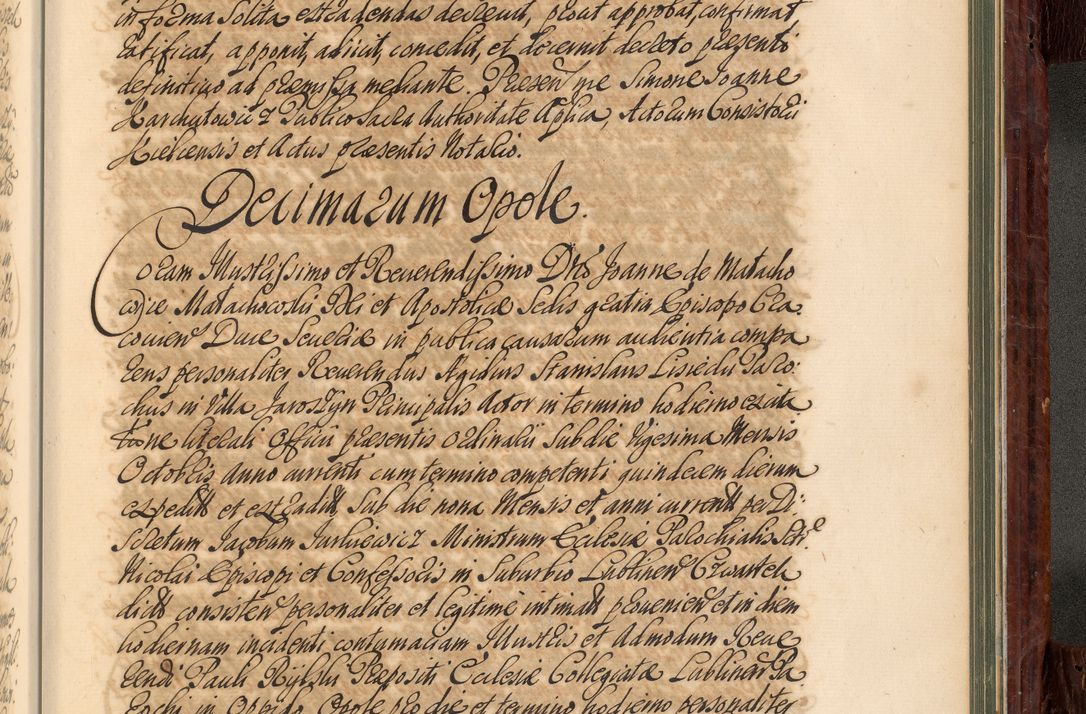 in forma Solita extradendas decrevit, prout approbat, confirmat,
ratificat, apponit, adiicit, concedit, et decernit decreto præsenti
definitivo ad præmissa mediante. Præsen̄ me Simone Joanne
Karchutowicz Publico Sacra Authoritate Aplica, Actorum Consistorii
Kielcensis et Actus præsentis Notario.
Decimarum Opole.
Coram Illustrissimo et Reverendissimo Dn̄o Joanne de Małacho
wice Małachowski Dei et Apostolicæ Sedis gratia Episcopo Cra
covien̄ Duce Severiæ in publica causarum audientia compa
rens personaliter Reverendus Ægidius Stanislaus Lisiecki Paro
chus in Villa Jaroszyn Principalis Actor in termino hodierno ex cita
tione literali Officii præsentis ordinarii Sub die Vigesima Mensis
Octobris Anno currenti cum termino competenti quindecem dierum
expeditt et extraditt Sub die nona Mensis et anni currentt per Di
scretum Jacobum Jurkiewicz Ministrum Ecclesiæ Parochialis Sti
Nicolai Episcopi et Confessoris in Suburbio Lublinen̄ Czwartek
dictt consisten̄ personaliter et legitimè intimatt provenien̄ et in diem
hodiernam incidenti contumaciam Illustris et Admodum Reve
rendi Pauli Rylski Præpositi Ecclesiæ Collegiatæ Lublinen̄ Pa
rochi in Oppido Opole pro die et termino hodierno personaliter